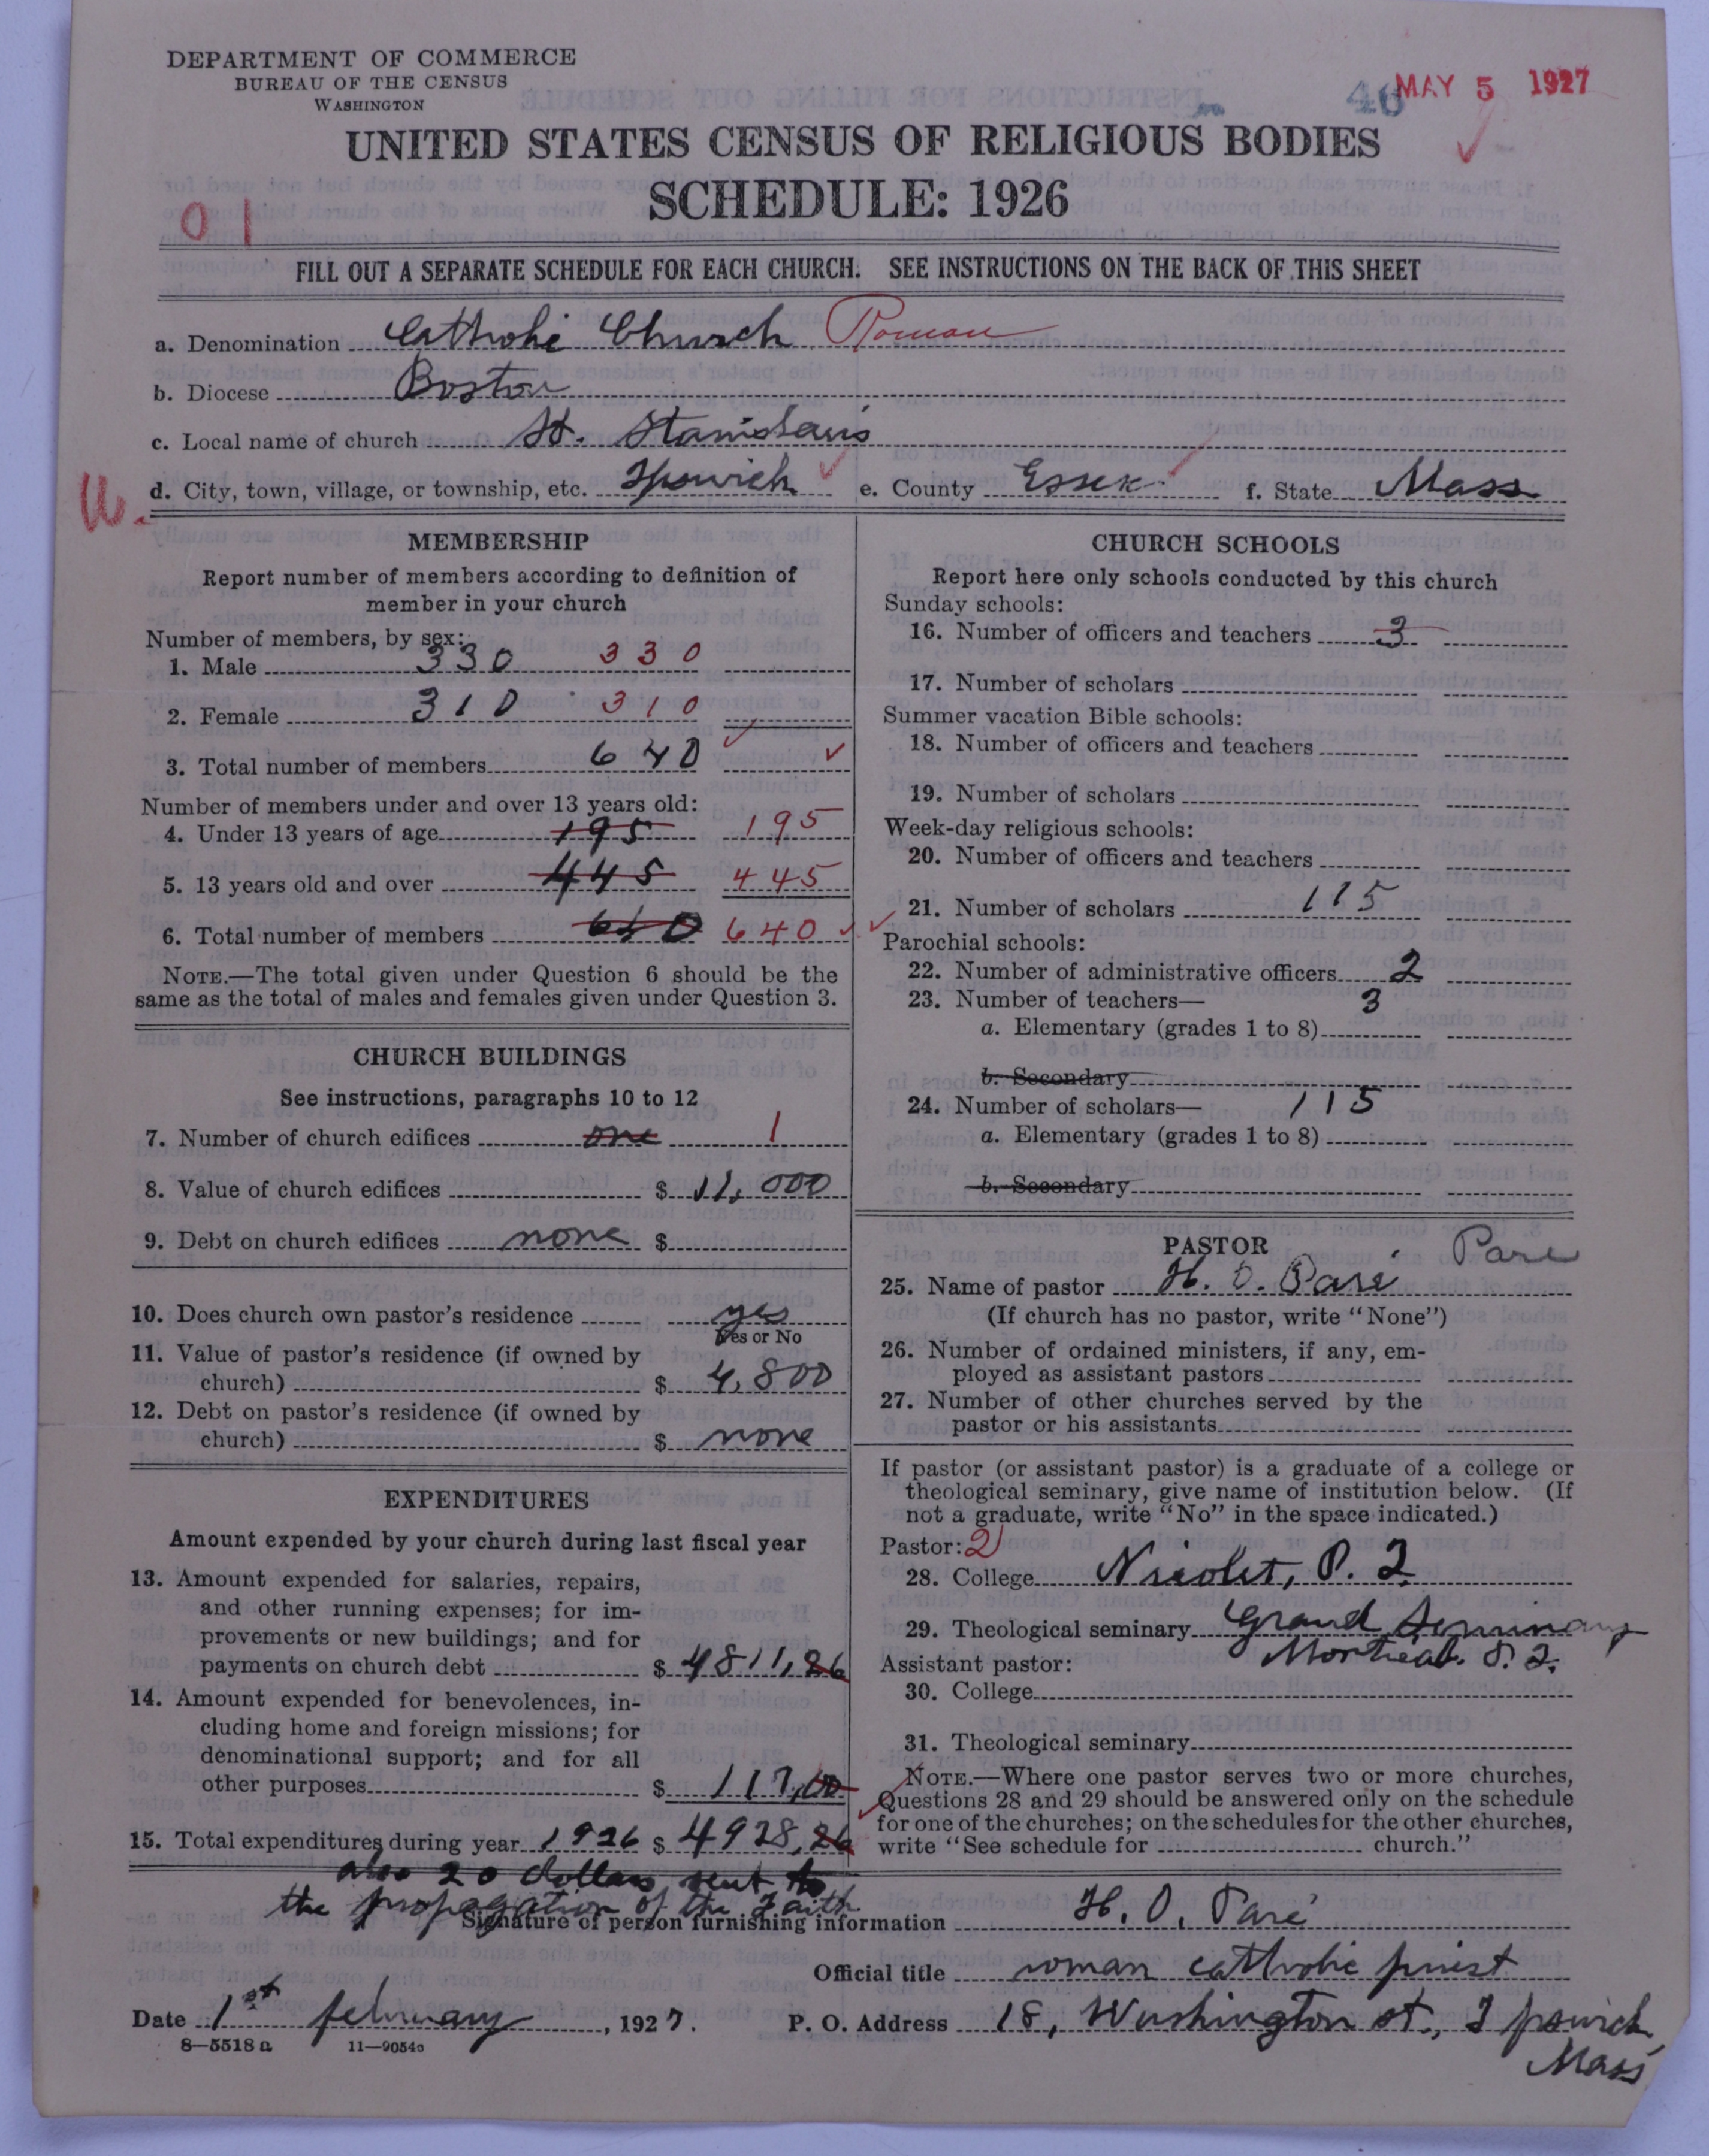 DEPARTMENT OF COMMERCE
BUREAU OF THE CENSUS
WASHINGTON
46 MAY 5 1927
UNITED STATES CENSUS OF RELIGIOUS BODIES
SCHEDULE: 1926
01
FILL OUT A SEPARATE SCHEDULE FOR EACH CHURCH. SEE INSTRUCTIONS ON THE BACK OF THIS SHEET
a. Denomination Catholic Church Roman
b. Diocese Boston
c. Local name of church St. Stanislaus
d. City, town, village, or township, etc. Ipswich e. County Essex f. State Mass
MEMBERSHIP
Report number of members according to definition of
member in your church
Number of members, by sex:
1. Male 330 330
2. Female 310 310
3. Total number of members 640
Number of members under and over 13 years old:
4. Under 13 years of age 195 195
5. 13 years old and over 445 445
6. Total number of members 640 640
NOTE.—The total given under Question 6 should be the
same as the total of males and females given under Question 3.
CHURCH BUILDINGS
See instructions, paragraphs 10 to 12
7. Number of church edifices one 1
8. Value of church edifices $ 11,000
9. Debt on church edifices none $
10. Does church own pastor's residence yes
Yes or No
11. Value of pastor's residence (if owned by
church) $ 4,800
12. Debt on pastor's residence (if owned by
church) $ none
EXPENDITURES
Amount expended by your church during last fiscal year
13. Amount expended for salaries, repairs,
and other running expenses; for im-
provements or new buildings; and for
payments on church debt $ 4811,26
14. Amount expended for benevolences, in-
cluding home and foreign missions; for
denominational support; and for all
other purposes $ 117,00
15. Total expenditures during year 1926 $ 4928,26
also 20 dollars sent to
the propagation of the Faith
CHURCH SCHOOLS
Report here only schools conducted by this church
Sunday schools:
16. Number of officers and teachers 3
17. Number of scholars
Summer vacation Bible schools:
18. Number of officers and teachers
19. Number of scholars
Week-day religious schools:
20. Number of officers and teachers
21. Number of scholars 115
Parochial schools:
22. Number of administrative officers 2
23. Number of teachers— 3
a. Elementary (grades 1 to 8)
b. Secondary
24. Number of scholars— 115
a. Elementary (grades 1 to 8)
b. Secondary
PASTOR Pare
25. Name of pastor H. O. Paré
(If church has no pastor, write "None")
26. Number of ordained ministers, if any, em-
ployed as assistant pastors
27. Number of other churches served by the
pastor or his assistants
If pastor (or assistant pastor) is a graduate of a college or
theological seminary, give name of institution below. (If
not a graduate, write "No" in the space indicated.)
Pastor: 2
28. College Nicolet, P. Q.
29. Theological seminary Grand Seminary
Montreal. P. Q.
Assistant pastor:
30. College
31. Theological seminary
NOTE.—Where one pastor serves two or more churches,
Questions 28 and 29 should be answered only on the schedule
for one of the churches; on the schedules for the other churches,
write "See schedule for church."
Signature of person furnishing information H. O. Paré
Official title roman catholic priest
Date 1st february, 1927. P. O. Address 18, Washington st., Ipswich,
Mass
8—5518 a 11—9054a